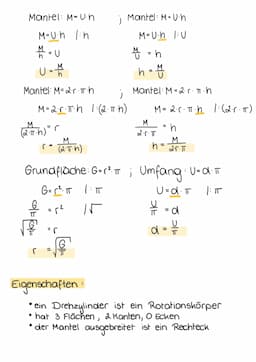 Mantel: M=U·h ; Mantel: M=U·h
M=U·h |:h    M=U·h |:U
M/h = U    M/U = h
U = M/h    h = M/U
Mantel: M=2·r·π·h ; Mantel: M=2·r·π·h
M=2·r·π·h |:(2·π·h)    M=2·r·π·h |:(2·r·π)
M/(2·π·h) = r    M/2·r·π = h
r = M/(2·π·h)    h = M/2·r·π
Grundfläche: G=r²·π ; Umfang: U=d·π
G=r²·π |:π    U=d·π |:π
G/π = r² |√    U/π = d
√G/π = r    d = U/π
r = √G/π
Eigenschaften:
• ein Drehzylinder ist ein Rotationskörper
• hat 3 Flächen, 2 Kanten, 0 Ecken
• der Mantel ausgebreitet ist ein Rechteck